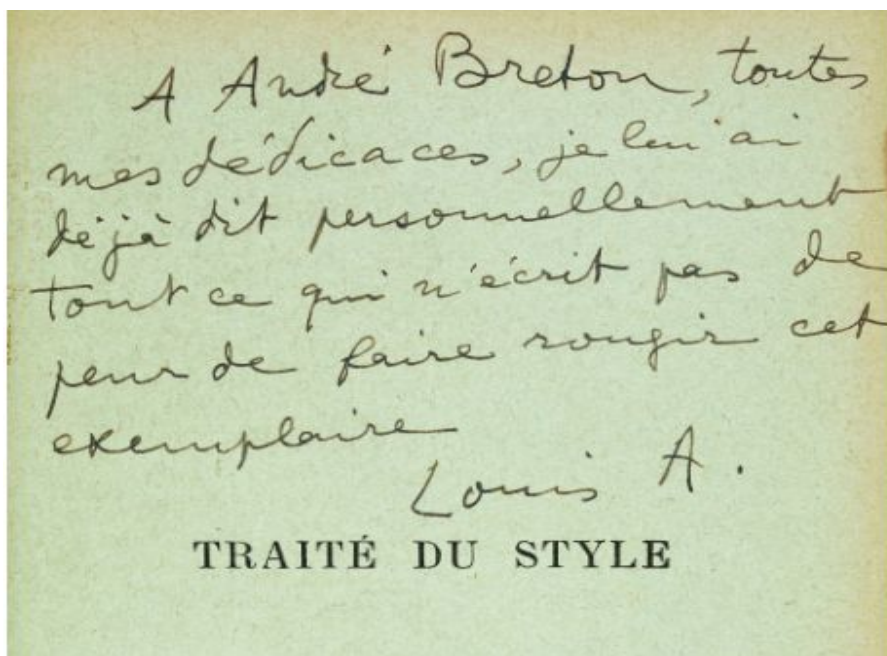 A André Breton, toutes
mes dédicaces, je lui ai
déjà dit personnellement
tout ce qui n'écrit pas de
peur de faire rougir cet
exemplaire
Louis A.
TRAITÉ DU STYLE